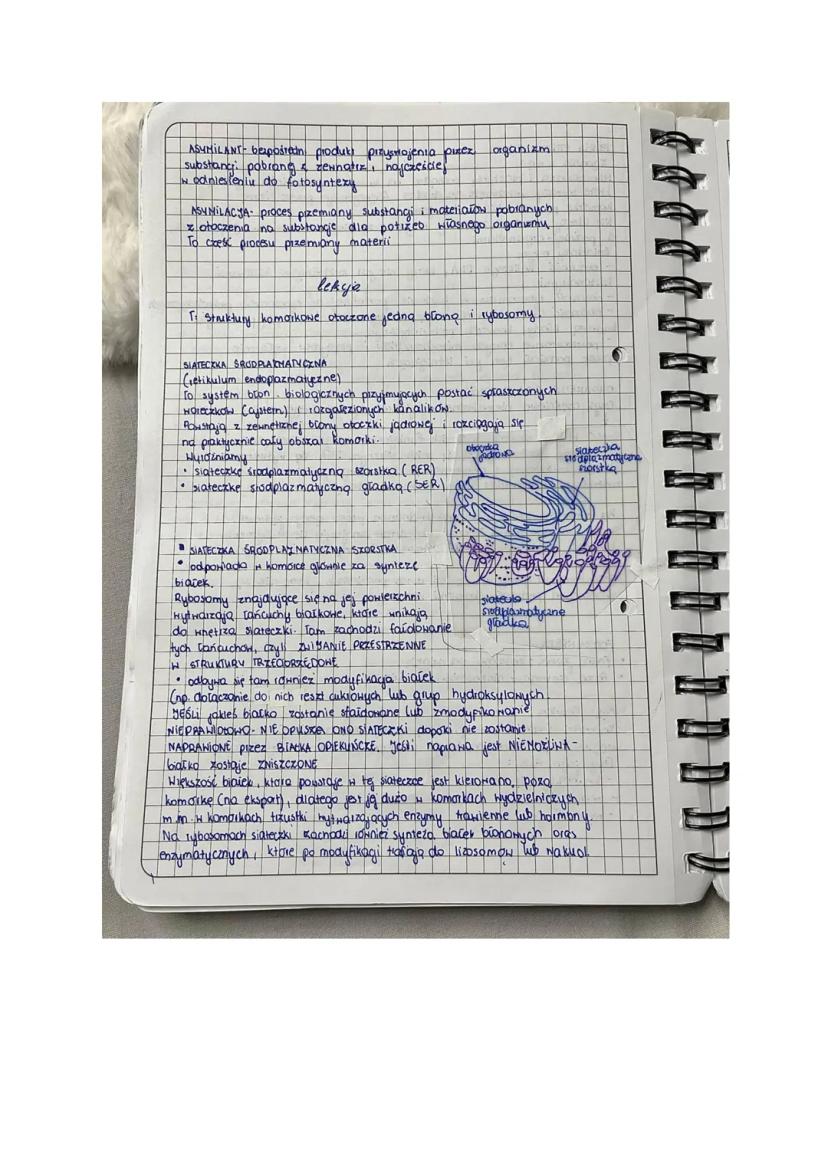 ASYMILANT- bezpośredni produkt przyswojenia przez organizm
substancji pobranej z zewnątrz i najcześciej
w odniesieniu do fotosyntezy
ASYMILACJA- proces przemiany substancji i materiałów pobranych
z otoczenia na substancje dla potrzeb własnego organizmu
To cześć procesu przemiany materii
lekcja
T: Struktury komórkowe otoczone jedną błoną i rybosomy.
SIATECZKA ŚRÓDPLAZMATYCZNA
(retikulum endoplazmatyczne)
To system błon biologicznych przyjmujących postać spłaszczonych
woreczków (cystern) i rozgałęzionych kanalików.
Powstają z zewnętrznej błony otoczki jądrowej i rozciągają się
na praktycznie cały obszar komórki.
Wyróżniamy
• siateczkę śródplazmatyczną szorstką (RER)
• siateczkę śródplazmatyczną gładką (SER)
otoczka
jądrowa
siateczka
śródplazmatyczna
szorstka
siateczka
śródplazmatyczne
gładka
▪ SIATECZKA ŚRÓDPLAZMATYCZNA SZORSTKA
• odpowiada w komórce głównie za syntezę
białek.
Rybosomy znajdujące się na jej powierzchni
wytwarzają łańcuchy białkowe, które wnikają
do wnętrza siateczki. Tam zachodzi fałdowanie
tych łańcuchów, czyli ZWIJANIE PRZESTRZENNE
W STRUKTURY TRZECIORZĘDOWE
• odbywa się tam również modyfikacja białek
(np. dołączanie do nich reszt cukrowych lub grup hydroksylowych.
JEŚLI jakieś białko zostanie sfałdowane lub zmodyfikowanie
NIEPRAWIDŁOWO- NIE OPUSZCZA ONO SIATECZKI dopóki nie zostanie
NAPRAWIONE przez BIAŁKA OPIEKUŃCZE. Jeśli naprawa jest NIEMOŻLIWA-
białko zostaje ZNISZCZONE
Większość białek, która powstaje w tej siateczce jest kierowana poza
komórkę (na eksport), dlatego jest ją dużo w komórkach wydzielniczych
m.in. w komórkach trzustki wytwarzających enzymy trawienne lub hormony.
Na rybosomach siateczki zachodzi również synteza białek błonowych oraz
enzymatycznych, które po modyfikacji trafiają do lizosomów lub wakuol